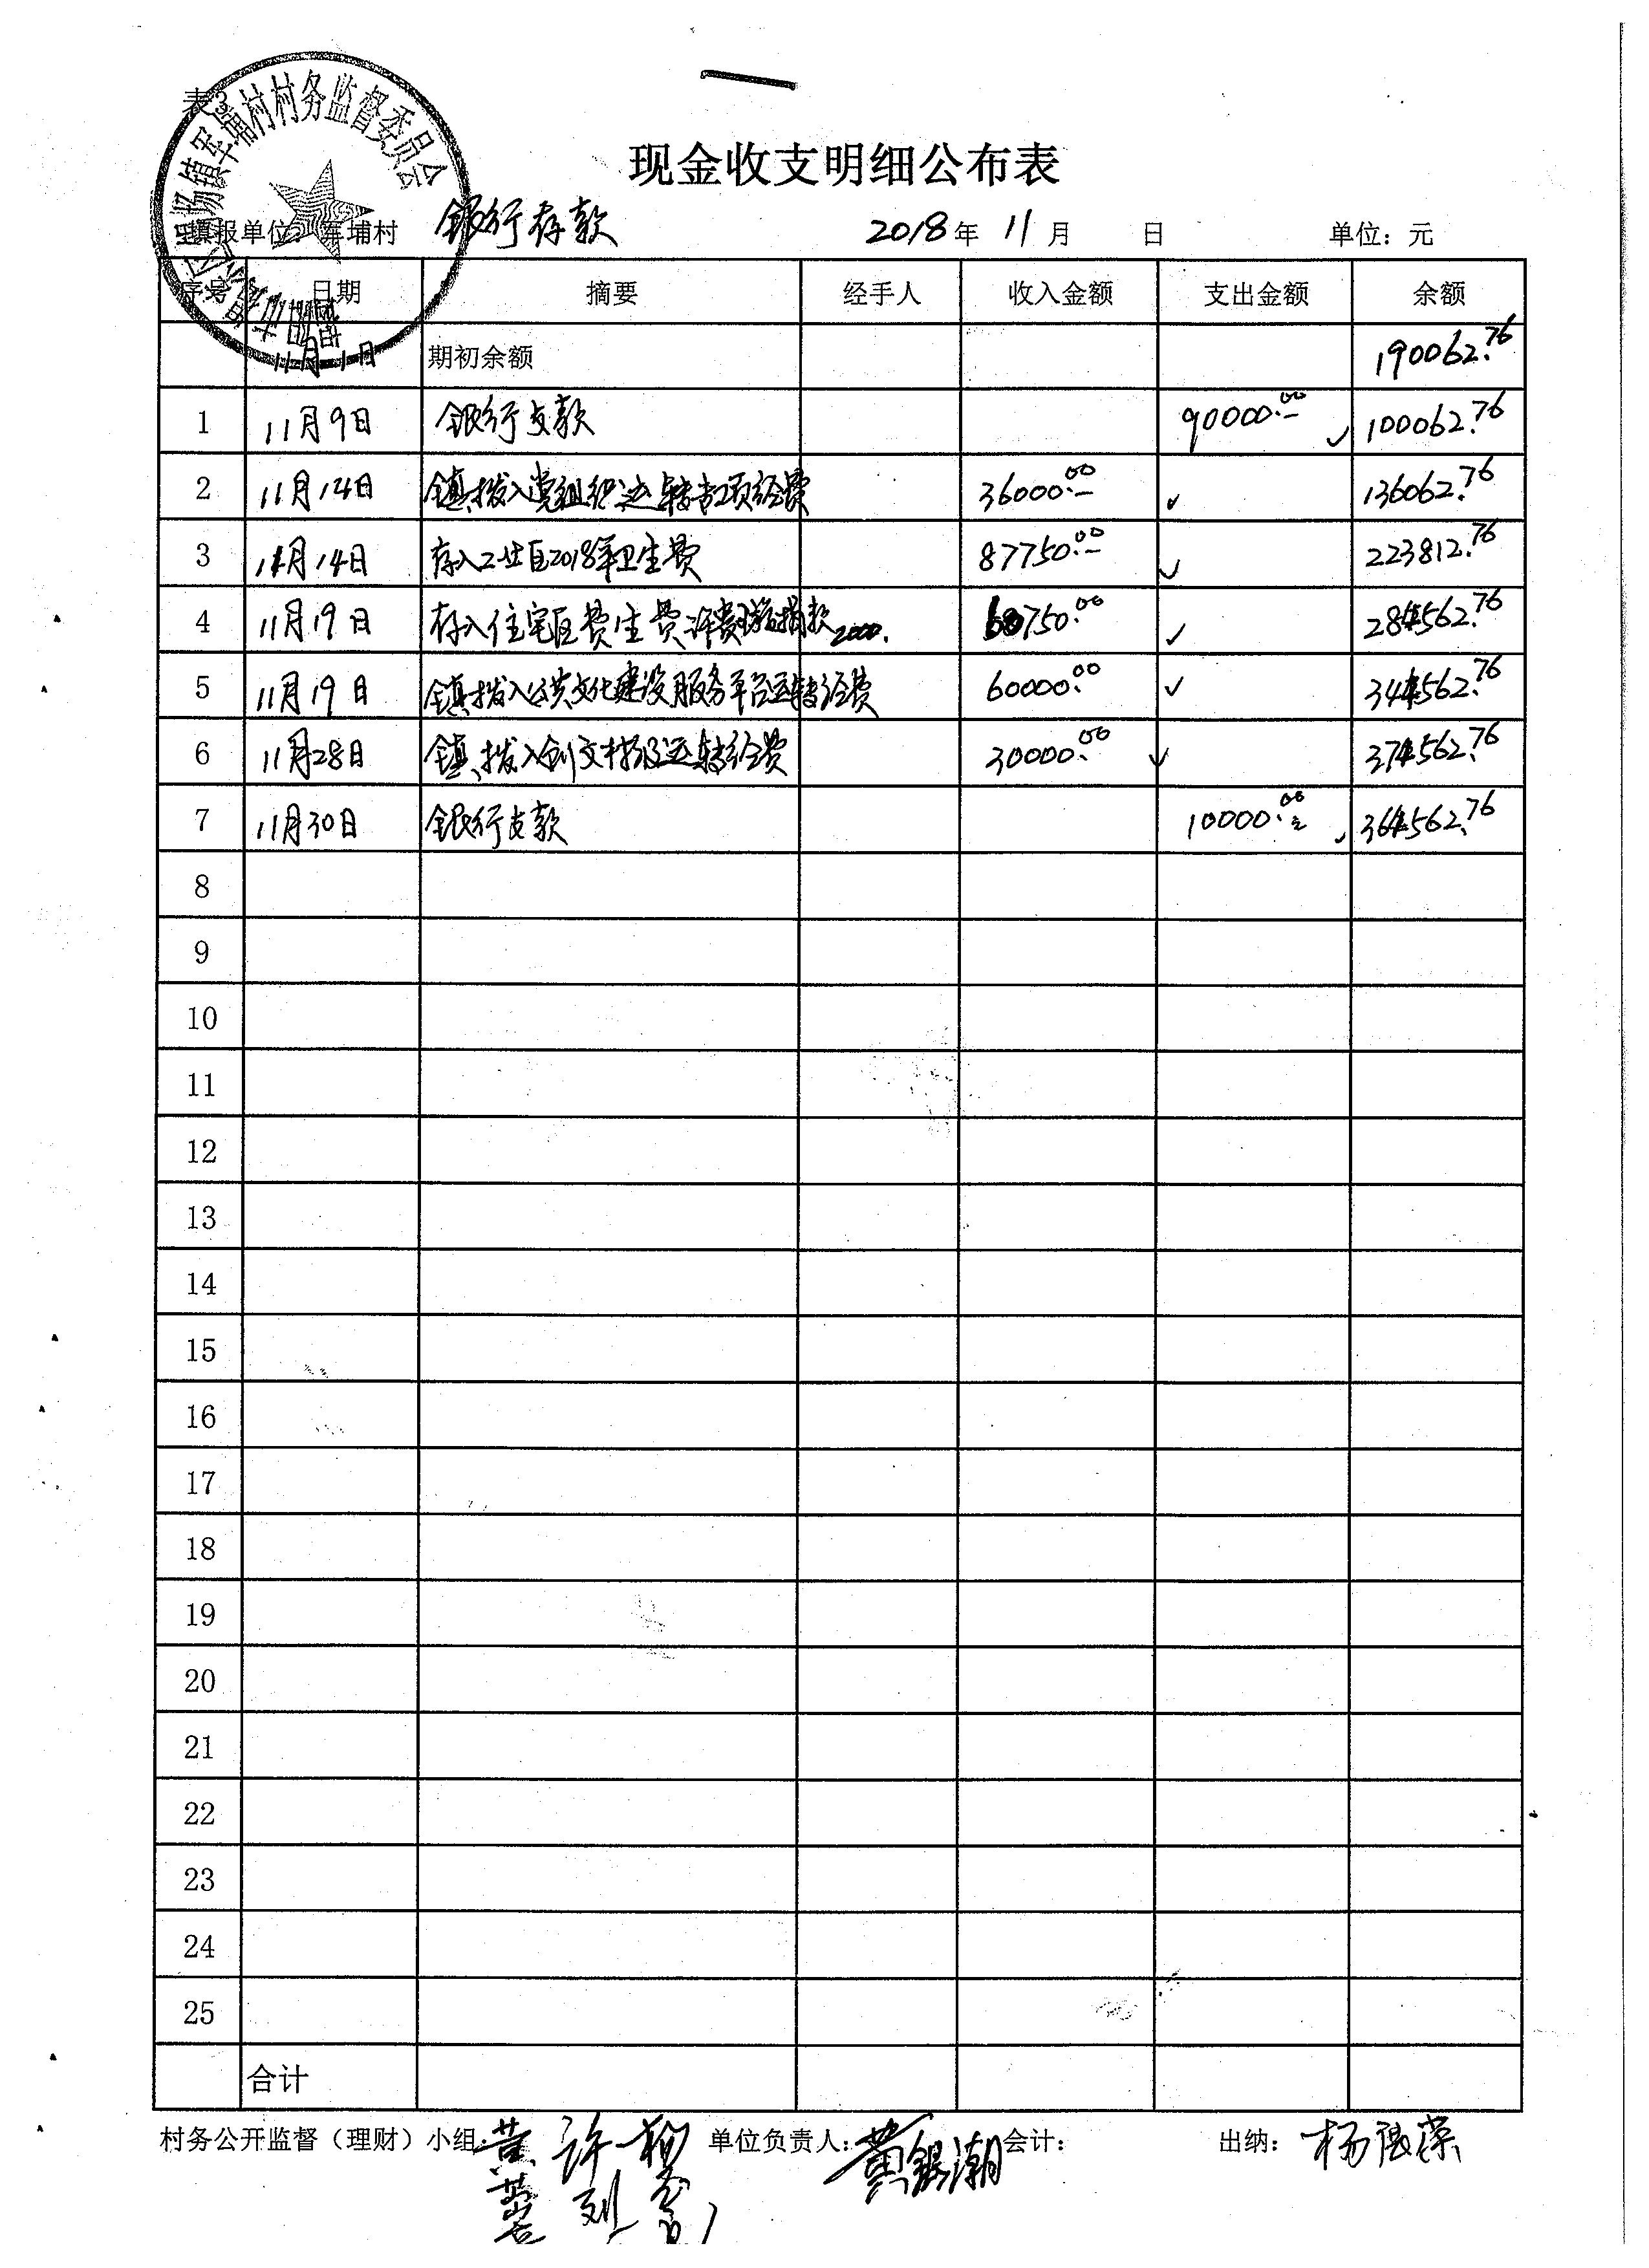 表3
揭阳市揭东区锡场镇军埔村村务监督委员会
现金收支明细公布表
填报单位：军埔村 银行存款 2018年 11月 日 单位：元
序号 日期 摘要 经手人 收入金额 支出金额 余额
11月1日 期初余额 190062.76
1 11月9日 银行支款 90000.00 100062.76
2 11月14日 镇拨入党组织运转专项经费 36000.00 136062.76
3 11月14日 存入工业区2018年卫生费 87750.00 223812.76
4 11月19日 存入住宅区费生费 捐款2000. 60750.00 284562.76
5 11月19日 镇拨入公共文化建设服务平台运转经费 60000.00 344562.76
6 11月28日 镇拨入创文村级运转经费 30000.00 374562.76
7 11月30日 银行支款 10000.00 364562.76
8
9
10
11
12
13
14
15
16
17
18
19
20
21
22
23
24
25
合计
村务公开监督（理财）小组： 单位负责人：黄银潮 会计： 出纳：